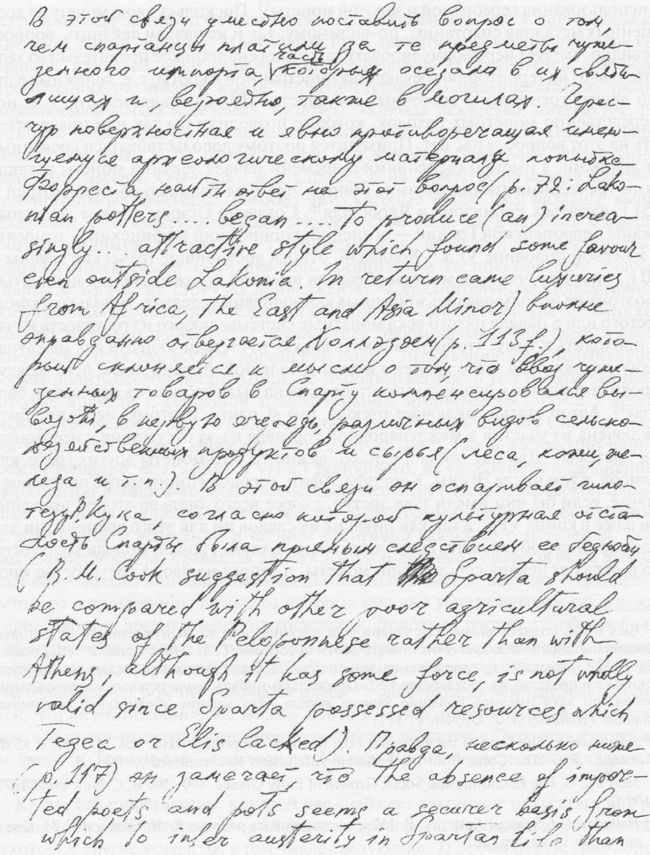 В этой связи уместно поставить вопрос о том,
чем спартанцы платили за те предметы чуже-
земного импорта, часть которых оседала в их святи-
лищах и, вероятно, также в могилах. Черес-
чур поверхностная и явно противоречащая имею-
щемуся археологическому материалу попытка
Форреста найти ответ на этот вопрос (p. 72: Lako-
nian potters .... began .... to produce (an) increa-
singly... attractive style which found some favour
even outside Lakonia. In return came luxuries
from Africa, the East and Asia Minor) вполне
оправданно отвергается Холлэдэем (p. 113f.), кото-
рый склоняется к мысли о том, что ввоз чуже-
земных товаров в Спарту компенсировался вы-
возом, в первую очередь, различных видов сельско-
хозяйственных продуктов и сырья (леса, кожи, же-
леза и т.п.) В этой связи он оспаривает гипо-
тезу Р. Кука, согласно которой культурная отста-
лость Спарты была прямым следствием ее бедности
(R. M. Cook suggestion that Sparta should
be compared with other poor agricultural
states of the Peloponnese rather than with
Athens, although it has some force, is not wholly
valid since Sparta possessed resources which
Tegea or Elis lacked). Правда, несколько ниже
p. 117) он замечает, что the absence of impor-
ted poets and pots seems a securer basis from
which to infer austerity in Spartan life than